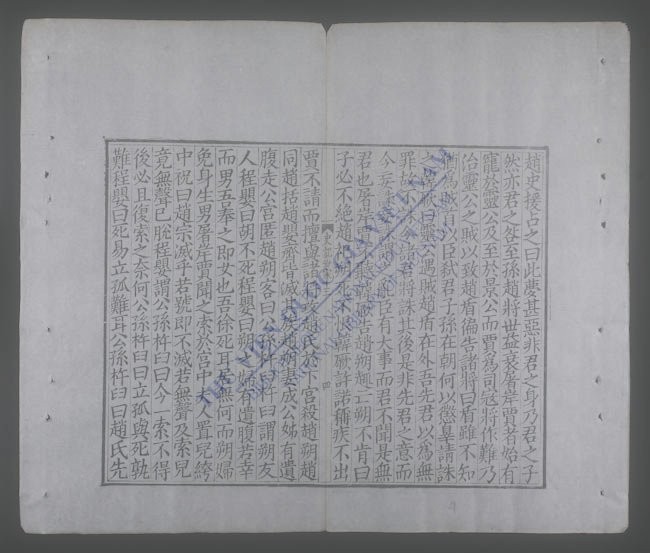 趙史援占之曰此夢甚惡非君之身乃君之子
然亦君之咎至孫趙將世益衰屠岸賈者始有
寵於靈公及至於景公而賈為司寇將作難乃
治靈公之賊以致趙盾徧告諸將曰盾雖不知
猶為賊首以臣弒君子孫在朝何以懲辠請誅
之韓厥曰靈公遇賊趙盾在外吾先君以為無
罪故不誅今諸君將誅其後是非先君之意而
今妄誅妄誅謂之亂臣有大事而君不聞是無
君也屠岸賈不聽韓厥告趙朔趣亡朔不肯曰
子必不絕趙祀朔死不恨韓厥許諾稱疾不出
四
賈不請而擅與諸將攻趙氏於下宮殺趙朔趙
同趙括趙嬰齊皆滅其族趙朔妻成公姊有遺
腹走公宮匿趙朔客曰公孫杵臼杵臼謂朔友
人程嬰曰胡不死程嬰曰朔之婦有遺腹若幸
而男吾奉之即女也吾徐死耳居無何而朔婦
免身生男屠岸賈聞之索於宮中夫人置兒絝
中祝曰趙宗滅乎若號即不滅若無聲及索兒
竟無聲已脫程嬰謂公孫杵臼曰今一索不得
後必且復索之奈何公孫杵臼曰立孤與死孰
難程嬰曰死易立孤難耳公孫杵臼曰趙氏先
THƯ VIỆN QUỐC GIA VIỆT NAM
NATIONAL LIBRARY OF VIETNAM